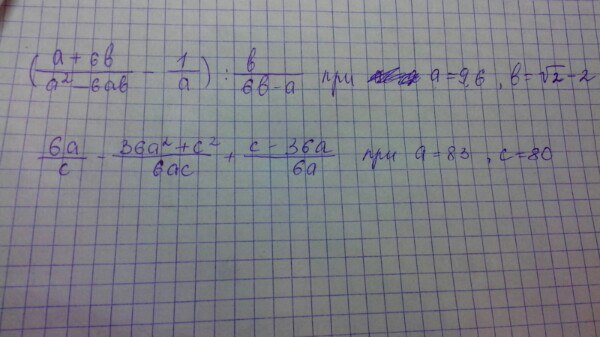 (a + 6b / a² - 6ab - 1 / a) : b / 6b - a при a = 96, b = √2 - 2
6a / c - 36a² + c² / 6ac + c - 36a / 6a при a = 83, c = 80